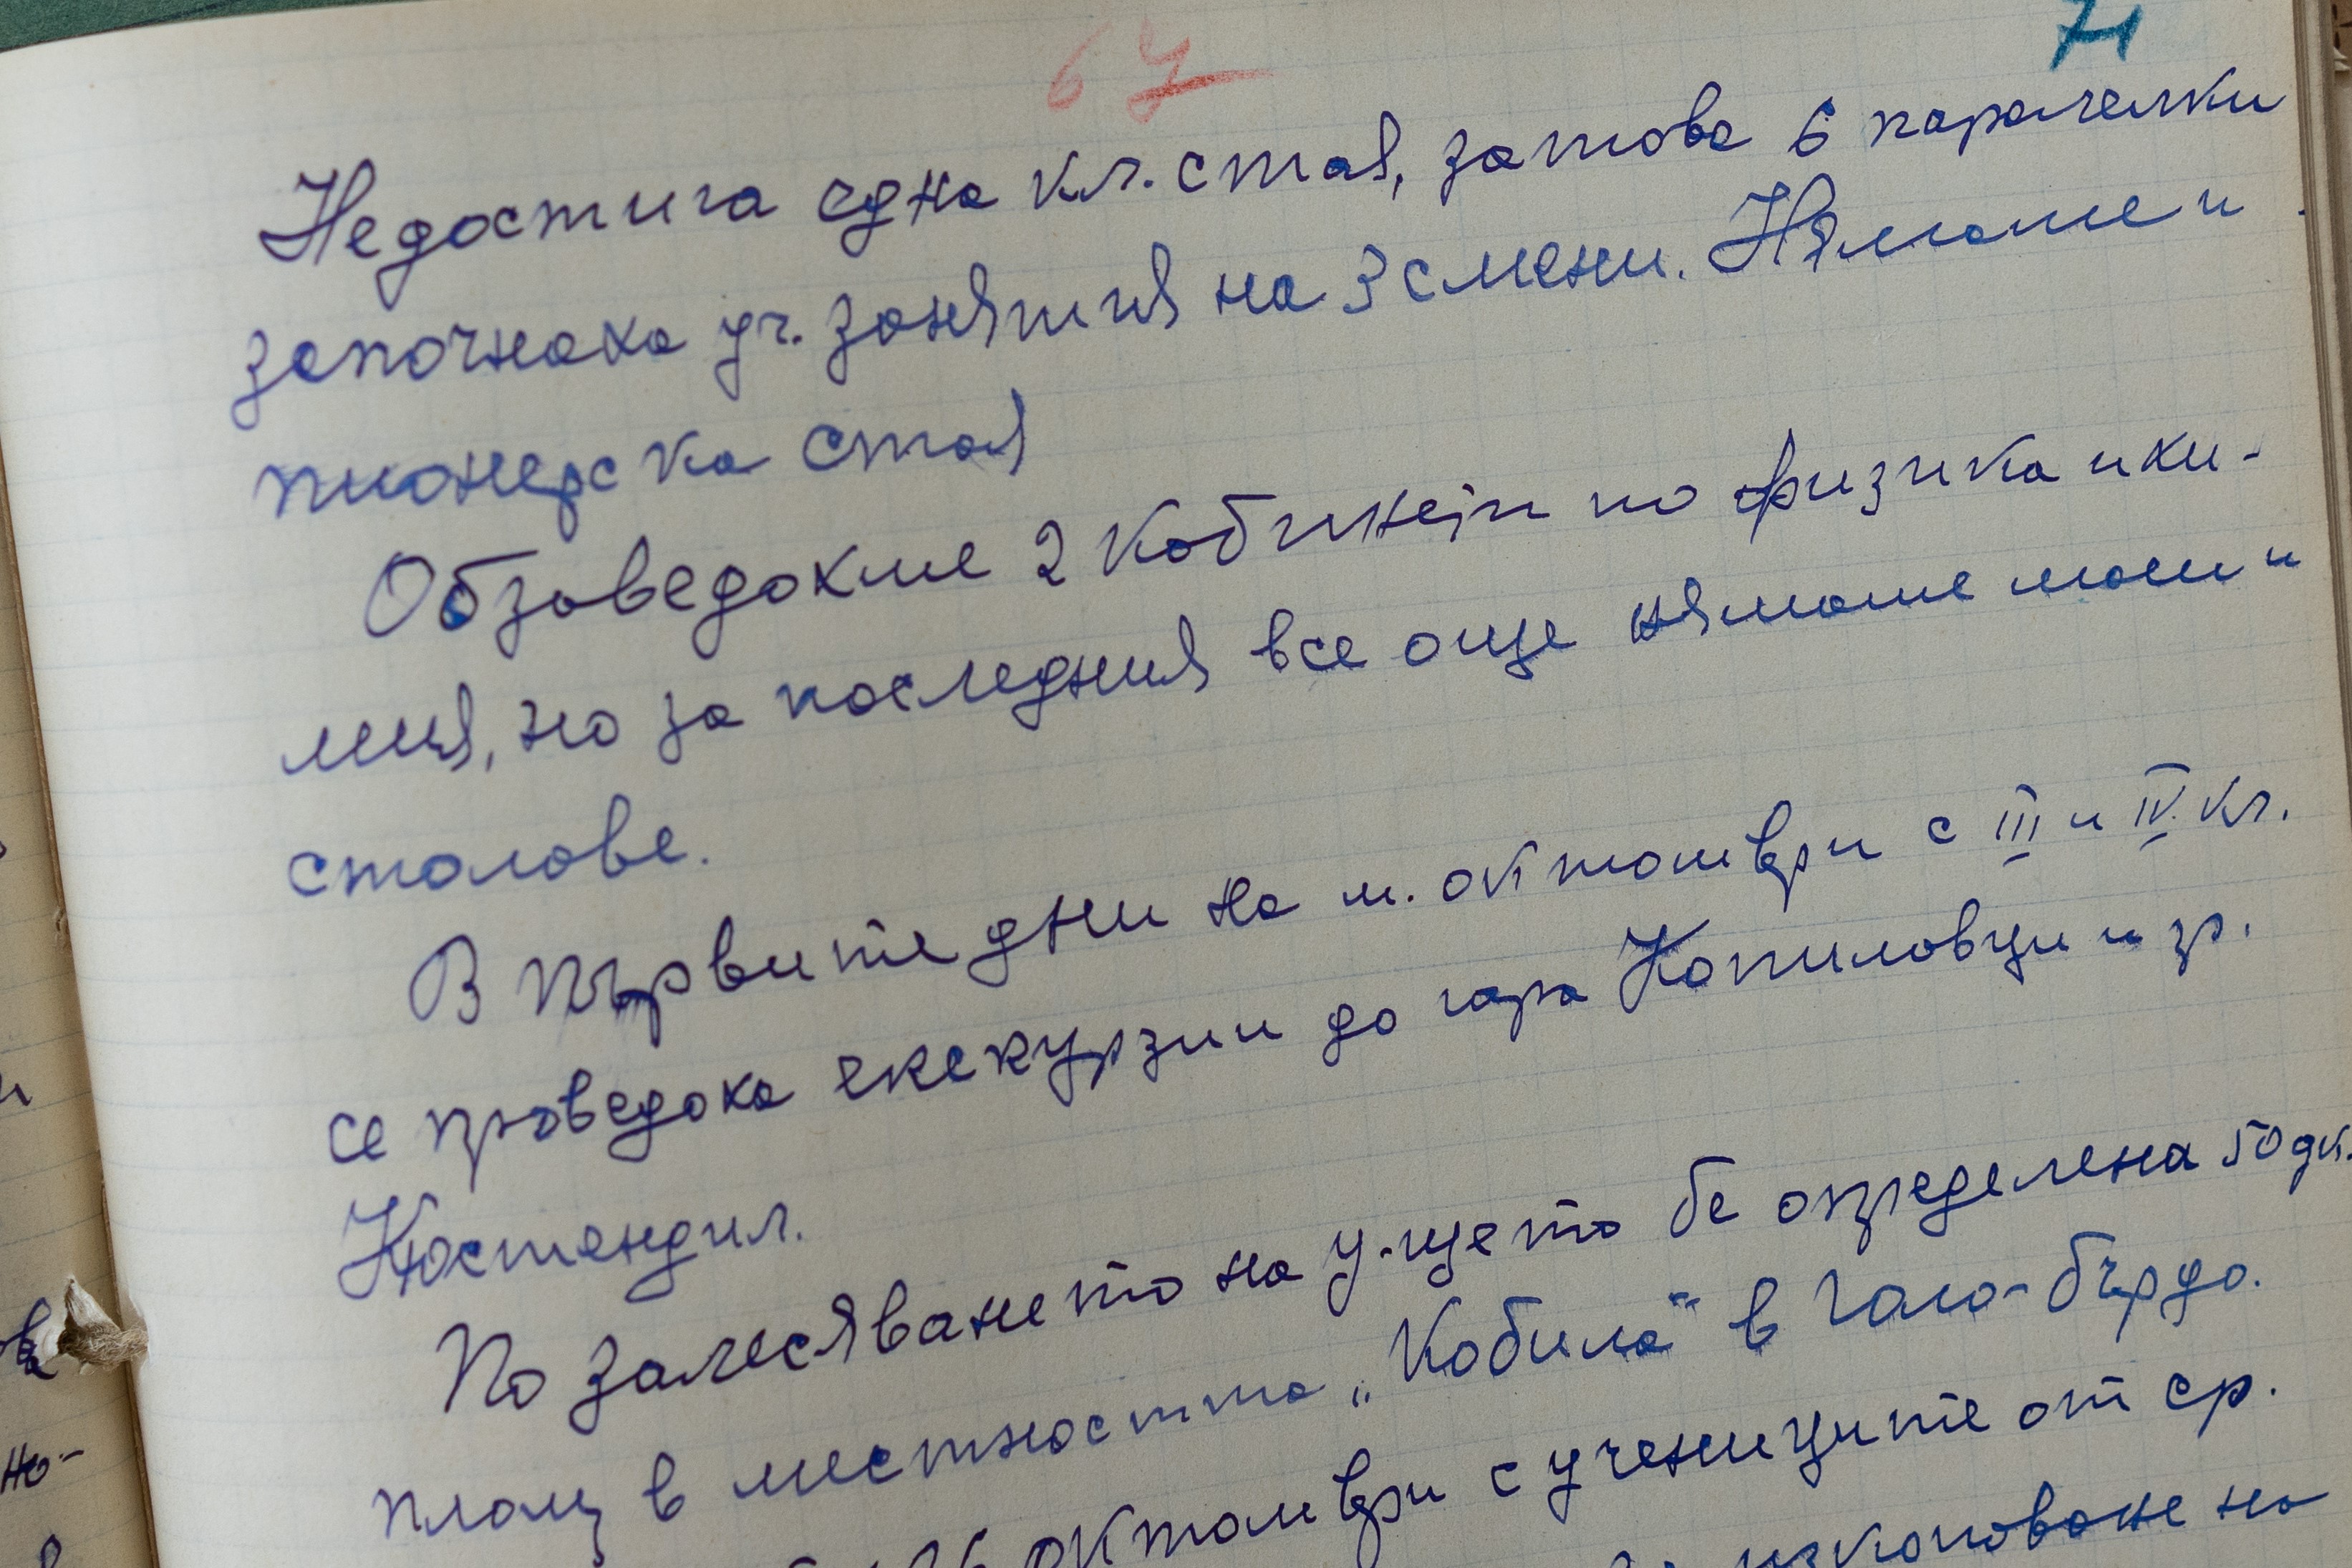 67
71
Недостига една кл. стая, затова 6 паралелки
започнаха уч. занятия на 3 смени. Нямаше и
пионерска стая
Обзаведохме 2 кабинети по физика и хи-
мия, но за последния все още нямаше маси и
столове.
В първите дни на м. октомври с III и IV кл.
се проведоха екскурзии до гара Копиловци и гр.
Кюстендил.
По залесяването на у-щето бе определена 50 дк.
площ в местността „Кобила" в Голо-бърдо.
октомври с учениците от ср.
изкопаване на
но-